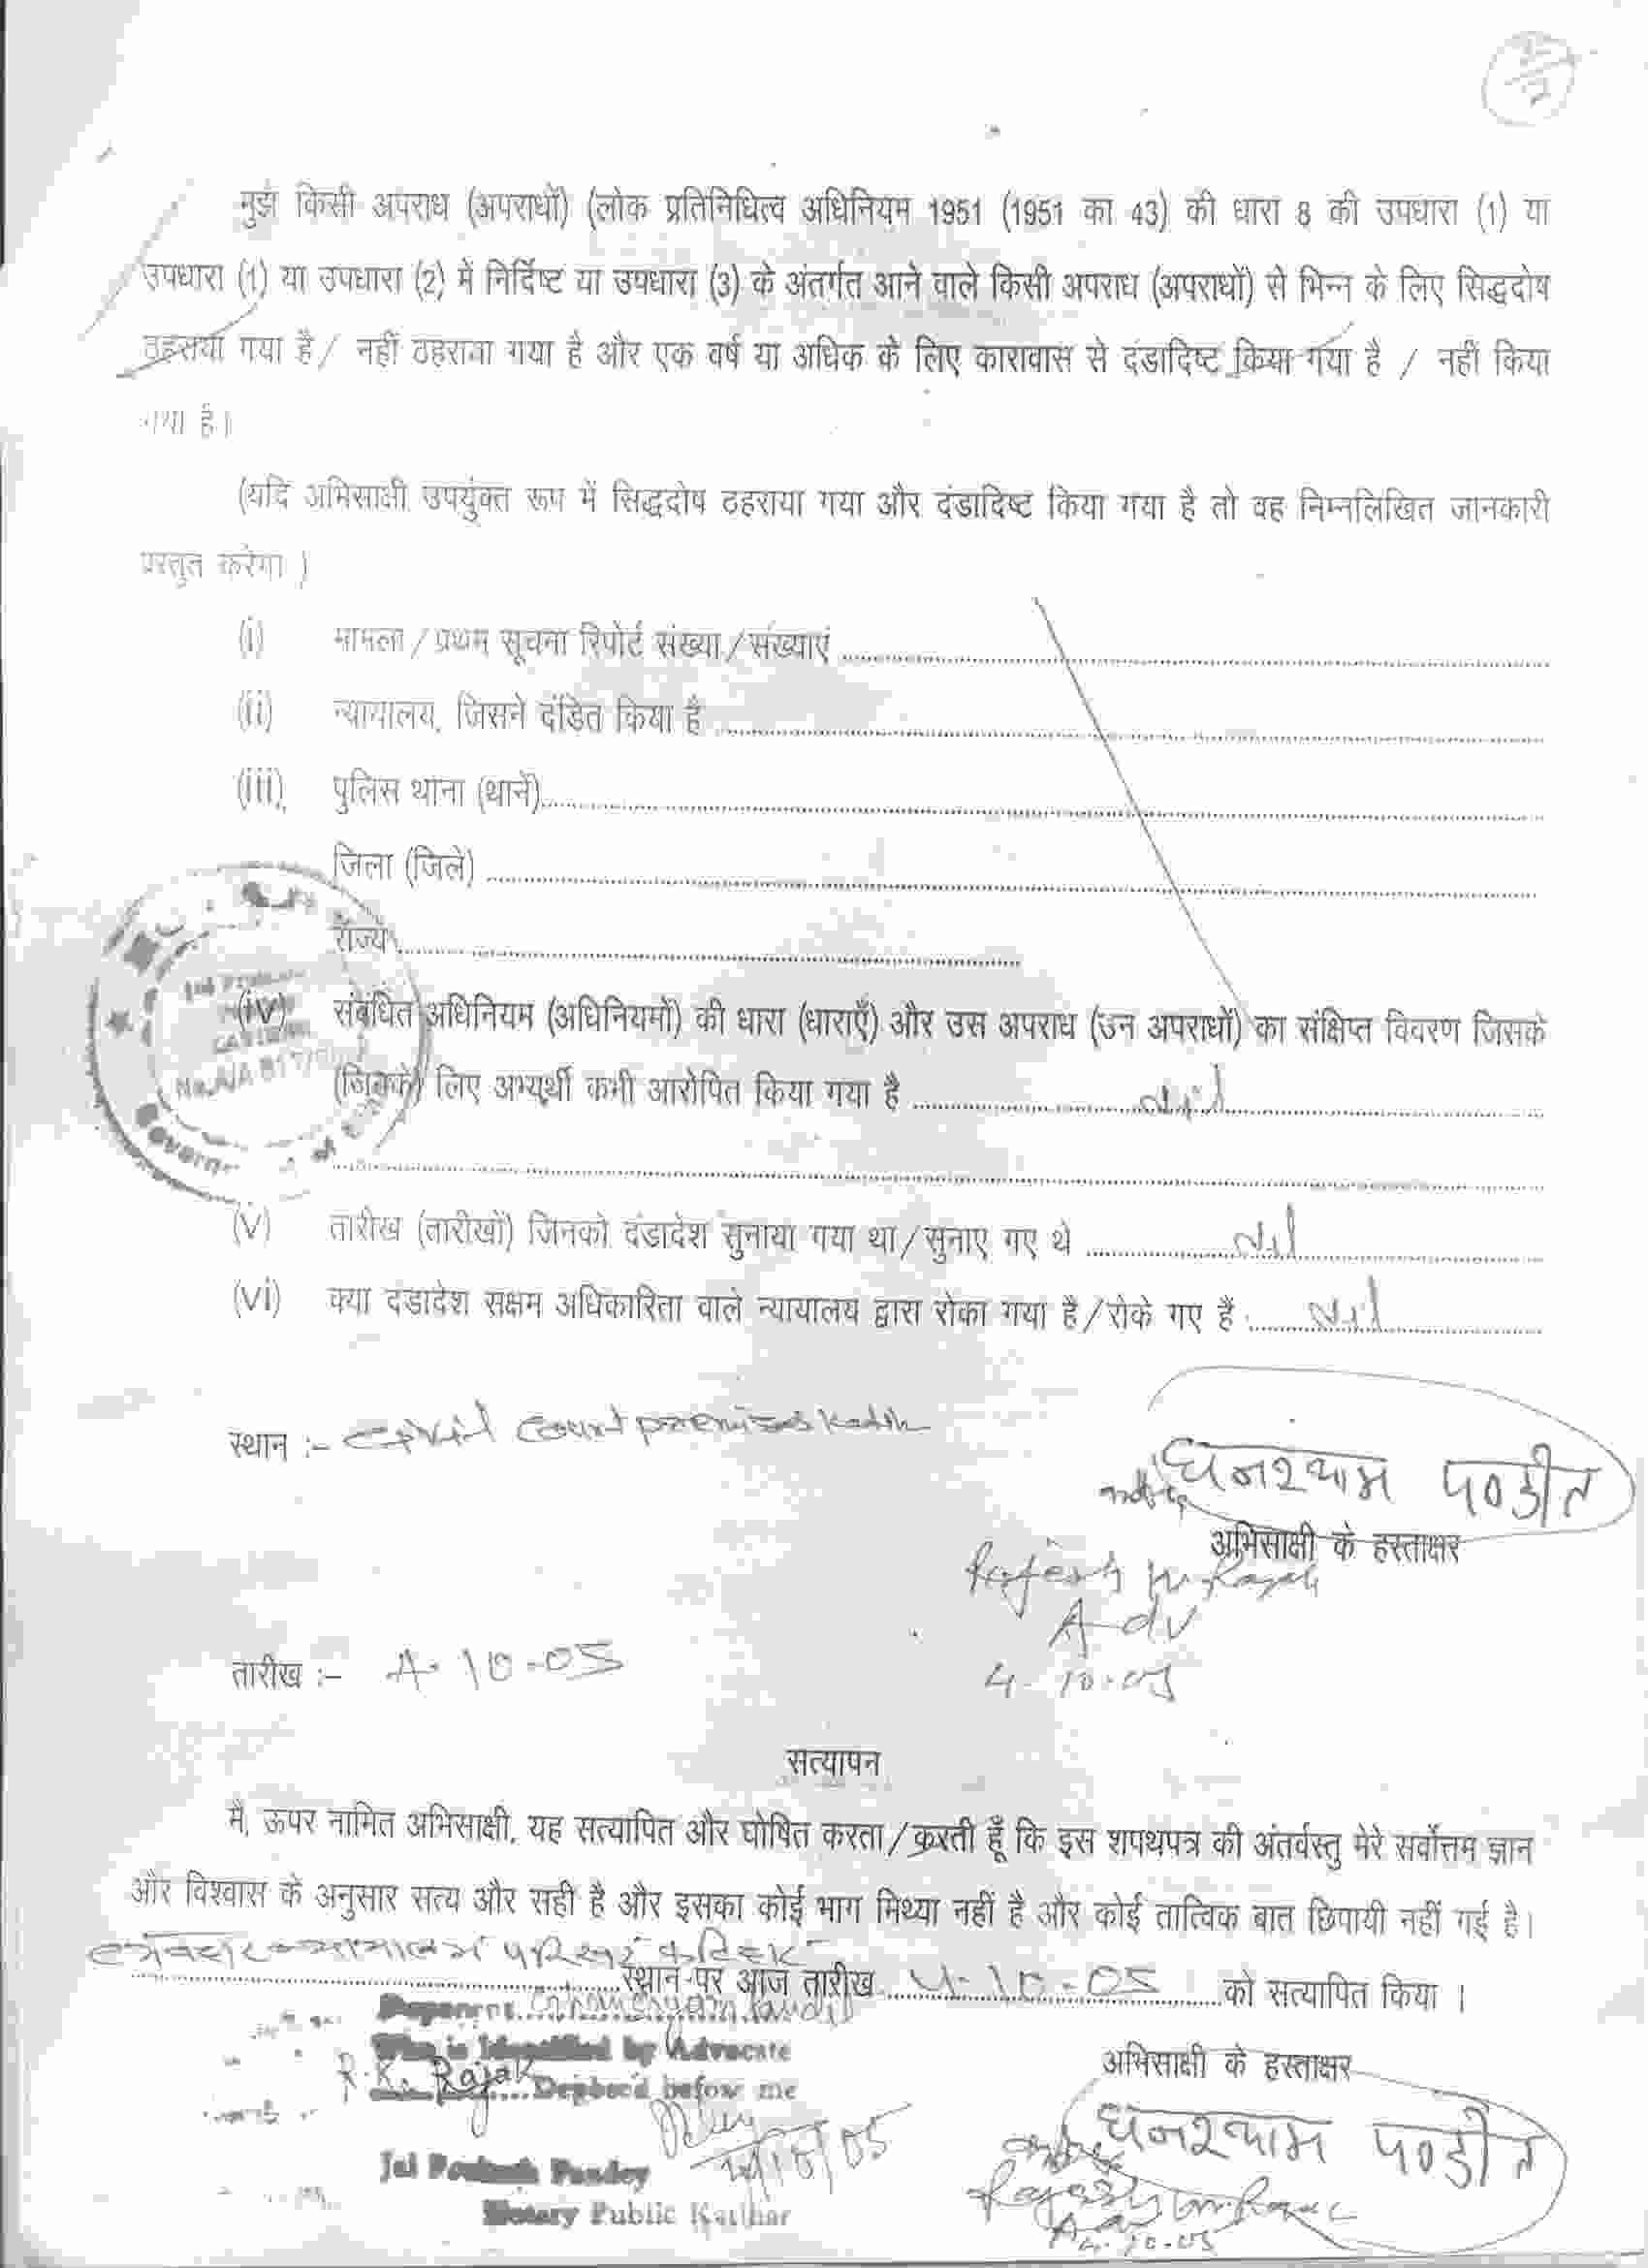 मुझे किसी अपराध (अपराधों) (लोक प्रतिनिधित्व अधिनियम 1951 (1951 का 43) की धारा 8 की उपधारा (1) या
उपधारा (1) या उपधारा (2) में निर्दिष्ट या उपधारा (3) के अंतर्गत आने वाले किसी अपराध (अपराधों) से भिन्न के लिए सिद्धदोष
ठहराया गया है / नहीं ठहराया गया है और एक वर्ष या अधिक के लिए कारावास से दंडादिष्ट किया गया है / नहीं किया
गया है।
(यदि अभिसाक्षी उपर्युक्त रूप में सिद्धदोष ठहराया गया और दंडादिष्ट किया गया है तो वह निम्नलिखित जानकारी
प्रस्तुत करेगा )
(i) मामला / प्रथम सूचना रिपोर्ट संख्या / संख्याएं
(ii) न्यायालय, जिसने दंडित किया है
(iii) पुलिस थाना (थानें)
जिला (जिले)
राज्य
(iv) संबंधित अधिनियम (अधिनियमों) की धारा (धाराएँ) और उस अपराध (उन अपराधों) का संक्षिप्त विवरण जिसके
(जिनके) लिए अभ्यर्थी कभी आरोपित किया गया है Nil
(v) तारीख (तारीखों) जिनको दंडादेश सुनाया गया था / सुनाए गए थे Nil
(vi) क्या दंडादेश सक्षम अधिकारिता वाले न्यायालय द्वारा रोका गया है / रोके गए हैं Nil
स्थान :- Civil Court premises
घनश्याम पण्डीत
अभिसाक्षी के हस्ताक्षर
Rajesh Kr. Rajak
Adv
4-10-05
तारीख :- 4-10-05
सत्यापन
मैं, ऊपर नामित अभिसाक्षी, यह सत्यापित और घोषित करता / करती हूँ कि इस शपथपत्र की अंतर्वस्तु मेरे सर्वोत्तम ज्ञान
और विश्वास के अनुसार सत्य और सही है और इसका कोई भाग मिथ्या नहीं है और कोई तात्विक बात छिपायी नहीं गई है।
स्थान पर आज तारीख 4-10-05 को सत्यापित किया ।
Deponent Ghanshyam Pandit
Who is Identified by Advocate
R.K. Rajak Deposed before me
4/10/05
Jai Prakash Pandey
Notary Public Katihar
अभिसाक्षी के हस्ताक्षर
घनश्याम पण्डीत
Rajesh Kr. Rajak
Adv
4-10-05